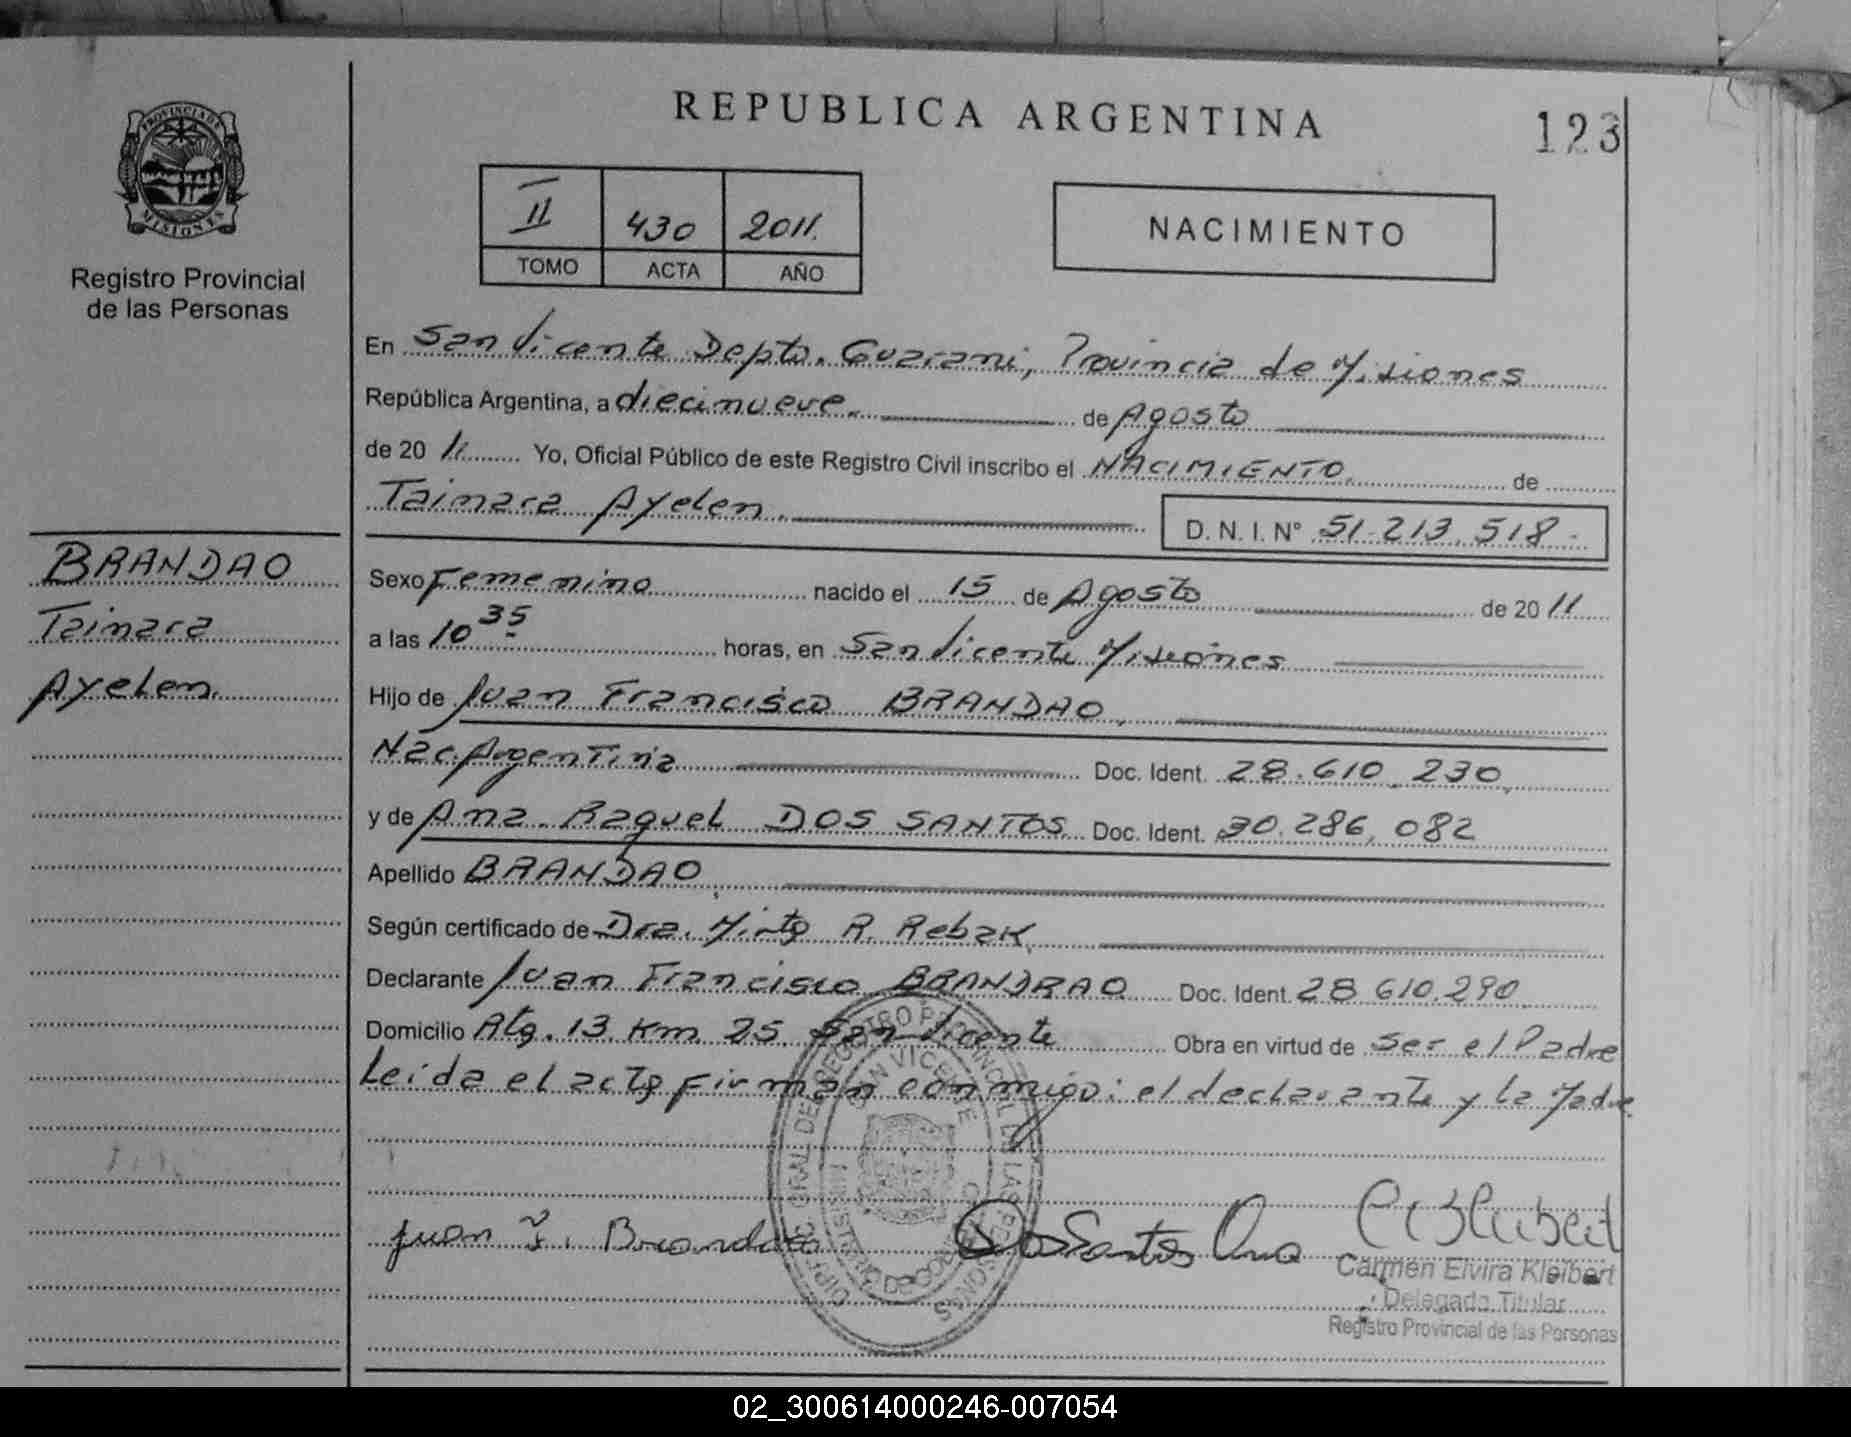 REPUBLICA ARGENTINA
123
PROVINCIA DE
MISIONES
Registro Provincial
de las Personas
II 430 2011.
TOMO ACTA AÑO
NACIMIENTO
En San Vicente Depto. Guarani, Provincia de Misiones
República Argentina, a diecinueve. de Agosto
de 20 11 Yo, Oficial Público de este Registro Civil inscribo el NACIMIENTO. de
Tainara Ayelen. D. N. I. N° 51.213.518.-
BRANDAO
Tainara
Ayelen.
Sexo Femenino nacido el 15 de Agosto de 20 11
a las 10 35 horas, en San Vicente Misiones
Hijo de Juan Francisco BRANDAO,
Nac. Argentina Doc. Ident. 28.610.230,
y de Ana Raquel DOS SANTOS Doc. Ident. 30.286.082
Apellido BRANDAO,
Según certificado de Dra. R. Rebak,
Declarante Juan Francisco Doc. Ident. 28 610.290
Domicilio Km 25 San Vicente Obra en virtud de ser el Padre
Leida el acta firman conmigo: el declarante y la Madre
Juan F. Brandao Dos Santos Ana
Carmen Elvira Kleibert
Delegado Titular
Registro Provincial de las Personas
02_300614000246-007054